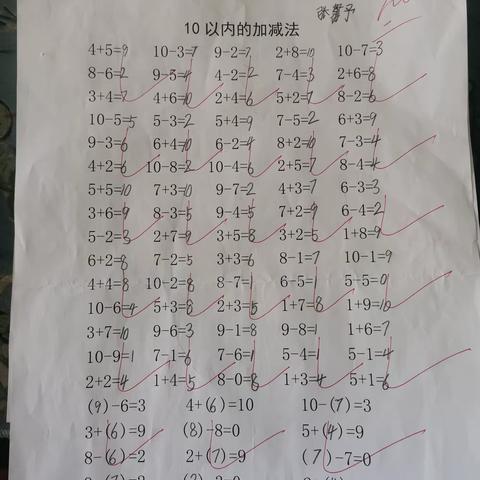 张馨予
10以内的加减法
4+5=9 10-3=7 9-2=7 2+8=10 10-7=3
8-6=2 9-5=4 4-2=2 7-4=3 2+6=8
3+4=7 4+6=10 2+4=6 5+2=7 8-2=6
10-5=5 5-3=2 5+4=9 7-5=2 6+3=9
9-3=6 6+4=10 6-2=4 8+2=10 7-3=4
4+2=6 10-8=2 10-4=6 2+5=7 8-4=4
5+5=10 7+3=10 9-7=2 4+3=7 6-3=3
3+6=9 8-3=5 9-4=5 7+2=9 6-4=2
5-2=3 2+7=9 3+5=8 3+2=5 1+8=9
6+2=8 7-2=5 3+3=6 8-1=7 10-1=9
4+4=8 10-2=8 8-7=1 6-5=1 5-5=0
10-6=4 5+3=8 2+3=5 1+7=8 1+9=10
3+7=10 9-6=3 9-1=8 9-8=1 1+6=7
10-9=1 7-1=6 7-6=1 5-4=1 5-1=4
2+2=4 1+4=5 8-0=8 1+3=4 5+1=6
(9)-6=3 4+(6)=10 10-(7)=3
3+(6)=9 (8)-8=0 5+(4)=9
8-(6)=2 2+(7)=9 (7)-7=0